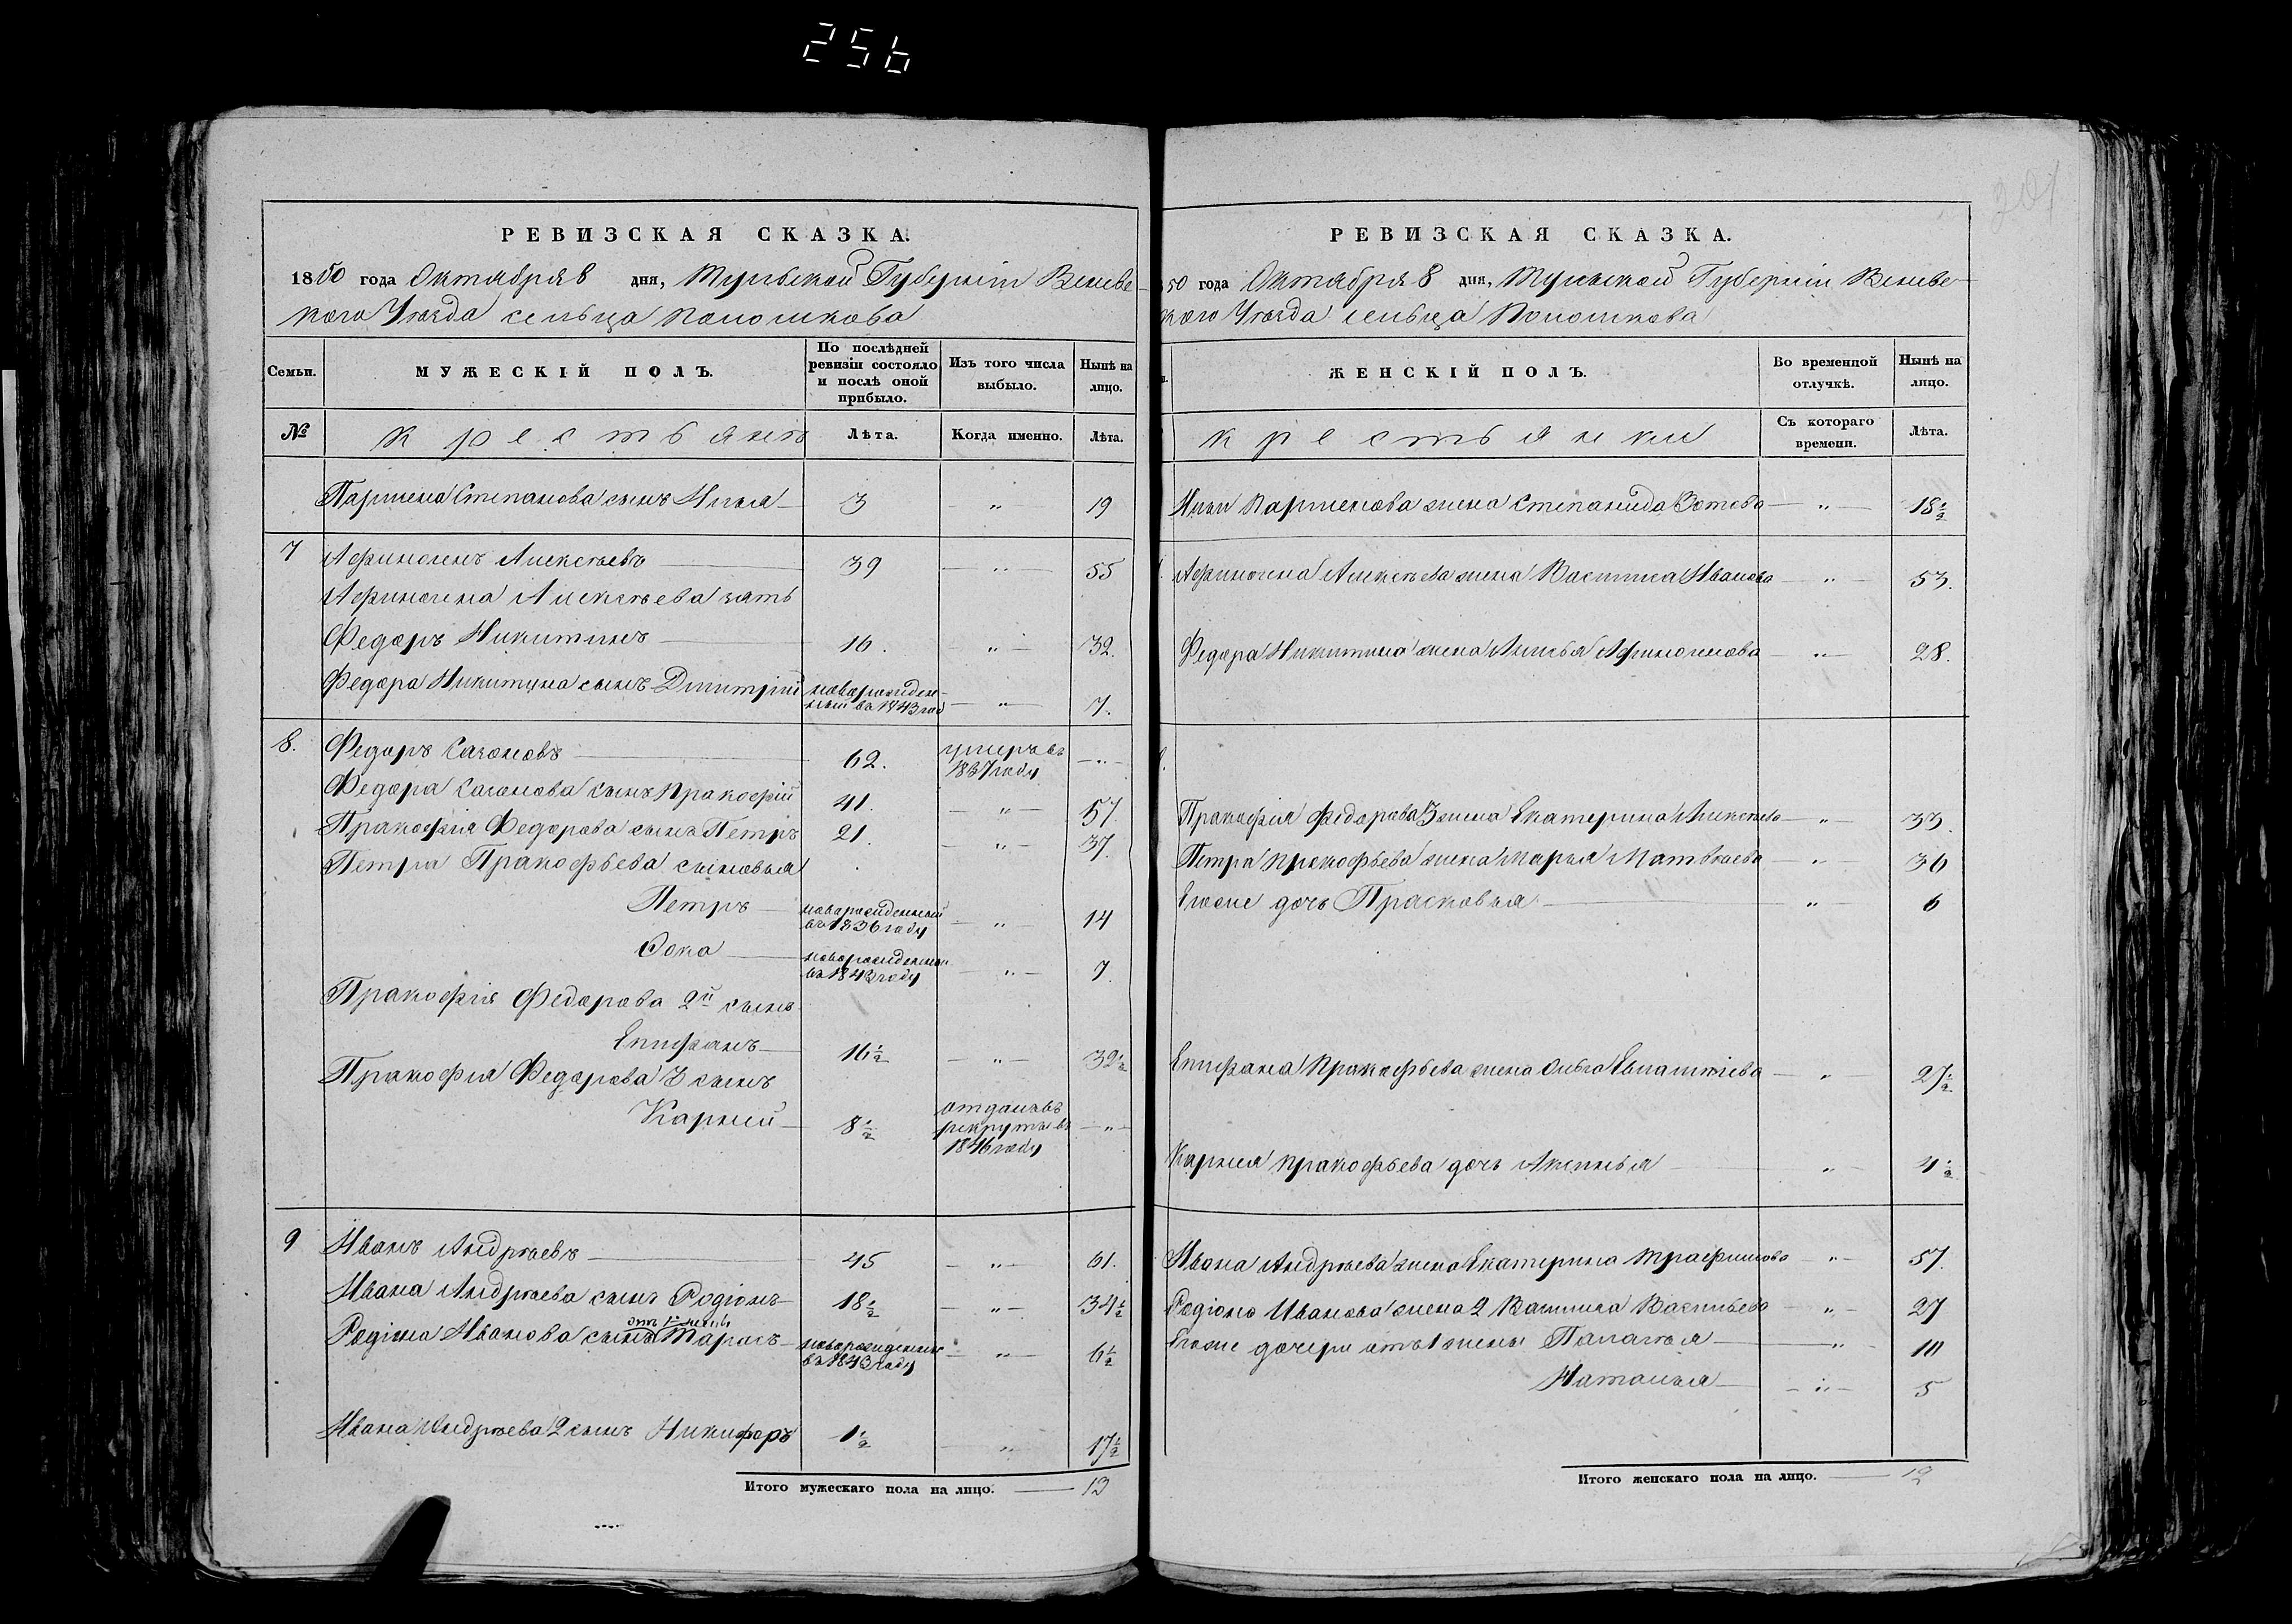 256
РЕВИЗСКАЯ СКАЗКА.
1850 года Октября 8 дня, Тульской Губерніи Веневс-
кого Уезда сельца
МУЖЕСКІЙ ПОЛЪ.
Семьи.
По послѣдней ревизіи состояло и послѣ оной прибыло.
Изъ того числа выбыло.
Нынѣ на лицо.
№
крестьянъ
Лѣта.
Когда именно.
Лѣта.
Пармена Степанова сынъ Илья 3 — „ — 19
7 Афиногенъ Алексѣевъ 39 — „ — 55
Афиногена Алексѣева зять
Федоръ Никитинъ 16. — „ — 32.
Федора Никитина сынъ Дмитрій новорожден-
ный въ 1843 год — „ — 7.
8. Федоръ Сазоновъ 62. умеръ въ
1837 году — „ —
Федора Сазонова сынъ Пракофій 41. — „ — 57.
Пракофія Федорова сынъ Петръ 21. — „ — 37.
Петра Пракофьева сыновья
Петръ новорожденный
въ 1836 году — „ — 14
Фока новорожденный
въ 1843 году — „ — 7.
Пракофія Федорова 2й сынъ
Епифанъ 16½ — „ — 32½
Пракофія Федорова 3 сынъ
Карпій 8½ отданъ въ
рекруты въ
1846 году — „ —
9 Иванъ Андрѣевъ 45 — „ — 61.
Ивана Андрѣева сынъ Родіонъ 18½ — „ — 34½
отъ 1й жены
Родіона Иванова сынъ Тарасъ новорожденный
въ 1843 году — „ — 6½
Ивана Андрѣева 2 сынъ Никифоръ 1½ „ 17½
Итого мужескаго пола на лицо. — 13
РЕВИЗСКАЯ СКАЗКА.
50 года Октября 8 дня, Тульской Губерніи Веневс-
кого Уезда сельца
ЖЕНСКІЙ ПОЛЪ.
Во временной отлучкѣ.
Нынѣ на лицо.
крестьянки
Съ котораго времени.
Лѣта.
Ильи Парменова жена Степанида Зотова — „ — 18½
Афиногена Алексѣева жена Василиса Иванова — „ — 53.
Федора Никитина жена Афиногенова — „ — 28.
Пракофія Федорова 3 жена Екатерина Алексѣева — „ — 33.
Петра Пракофьева жена Марья Матвѣева — „ — 36
Егоже дочь Прасковья — „ — 6
Епифана Пракофьева жена — „ — 27½
Карпія Пракофьева дочь Аксинья — „ — 4½
Ивана Андрѣева жена Екатерина Трафимова — „ — 57.
Родіона Иванова жена 2 Василиса Васильева — „ — 27
Егоже дочери отъ 1 жены Палагея — „ — 10
Наталья — „ — 5
Итого женскаго пола на лицо. — 12